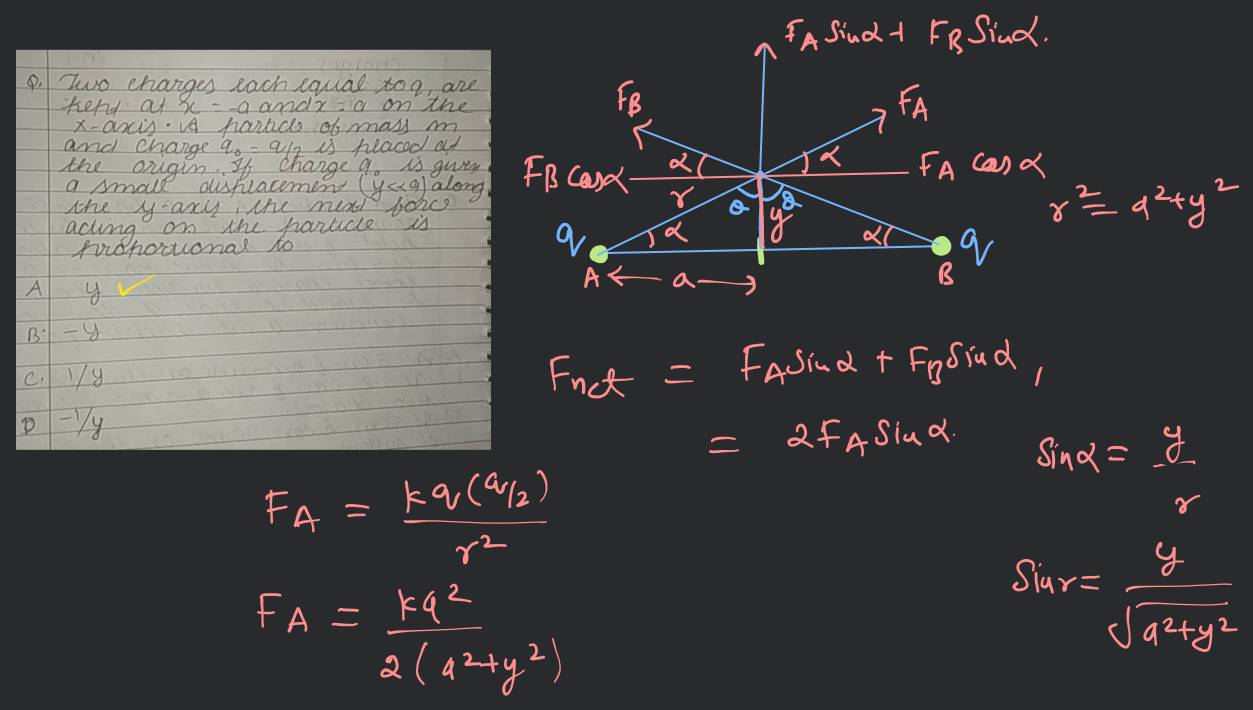 Q. Two charges each equal to q, are
kept at x = -a and x = a on the
x-axis. A particle of mass m
and charge q₀ = q/2 is placed at
the origin. If charge q₀ is given
a small displacement (y<<a) along
the y-axis, the next force
acting on the particle is
proportional to
A y ✓
B. -y
C. 1/y
D -1/y
F_A Sinα + F_B Sinα.
F_B
F_A
α
α
F_B Cosα
F_A Cosα
r
θ θ
y
r² = a²+y²
q
α
α
q
A ← a →
B
Fnet = F_A Sinα + F_B Sinα,
= 2F_A Sinα.
Sinα = y/r
F_A = kq(q/2)/r²
Sinr = y/√a²+y²
F_A = kq²/2(a²+y²)